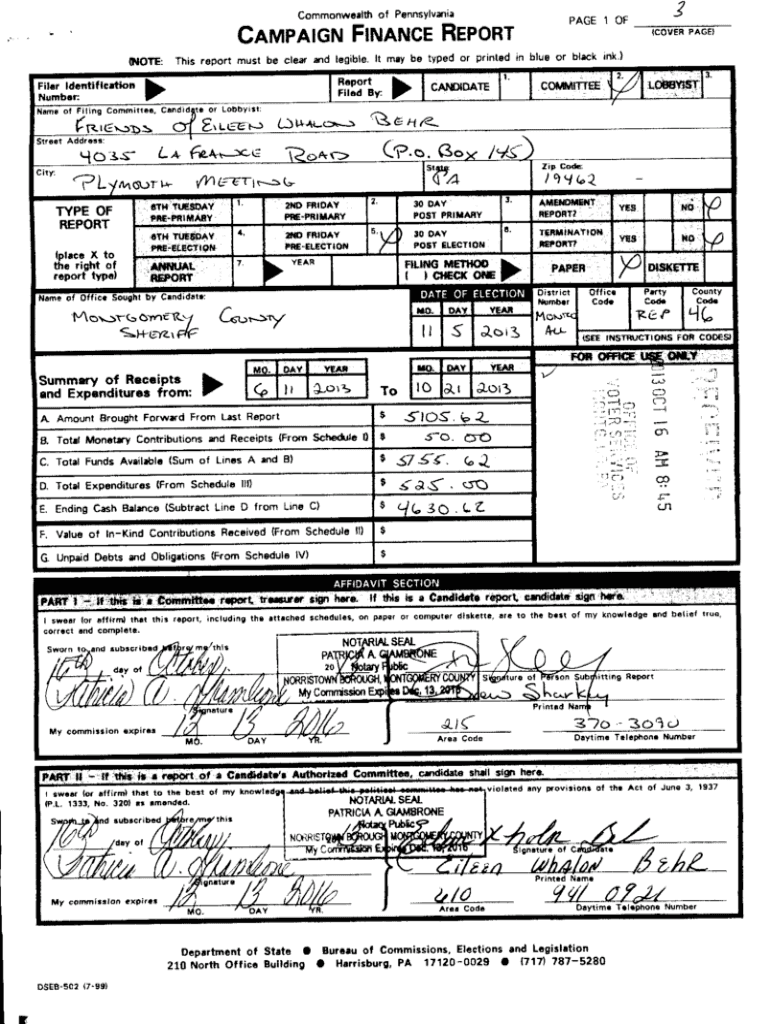 Commonwealth of Pennsylvania
CAMPAIGN FINANCE REPORT
PAGE 1 OF 3
(COVER PAGE)
(NOTE: This report must be clear and legible. It may be typed or printed in blue or black ink.)
Filer Identification Number:
Report Filed By:
CANDIDATE 1.
COMMITTEE 2. X
LOBBYIST 3.
Name of Filing Committee, Candidate or Lobbyist:
FRIENDS Of EILEEN WHALON BEHR
Street Address:
4035 LA FRANCE ROAD (P.O. BOX 145)
City: PLYMOUTH MEETING
State PA
Zip Code: 19462 -
TYPE OF REPORT
(place X to the right of report type)
6TH TUESDAY PRE-PRIMARY 1.
2ND FRIDAY PRE-PRIMARY 2.
30 DAY POST PRIMARY 3.
AMENDMENT REPORT? YES NO X
6TH TUESDAY PRE-ELECTION 4.
2ND FRIDAY PRE-ELECTION 5. X
30 DAY POST ELECTION 6.
TERMINATION REPORT? YES NO X
ANNUAL REPORT 7. YEAR
FILING METHOD ( ) CHECK ONE
PAPER X DISKETTE
Name of Office Sought by Candidate:
MONTGOMERY COUNTY
SHERIFF
DATE OF ELECTION
MO. DAY YEAR
11 5 2013
District Number
MONTCO
ALL
Office Code
Party Code
REP
County Code
46
(SEE INSTRUCTIONS FOR CODES)
Summary of Receipts and Expenditures from:
MO. DAY YEAR
6 11 2013
To
MO. DAY YEAR
10 21 2013
FOR OFFICE USE ONLY
RECEIVED
2013 OCT 16 AM 8:45
OFFICE OF
VOTER SERVICES
A. Amount Brought Forward From Last Report $ 5105.62
B. Total Monetary Contributions and Receipts (From Schedule I) $ 50.00
C. Total Funds Available (Sum of Lines A and B) $ 5155.62
D. Total Expenditures (From Schedule III) $ 525.00
E. Ending Cash Balance (Subtract Line D from Line C) $ 4630.62
F. Value of In-Kind Contributions Received (From Schedule II) $
G. Unpaid Debts and Obligations (From Schedule IV) $
AFFIDAVIT SECTION
PART I - If this is a Committee report, treasurer sign here. If this is a Candidate report, candidate sign here.
I swear (or affirm) that this report, including the attached schedules, on paper or computer diskette, are to the best of my knowledge and belief true, correct and complete.
Sworn to and subscribed before me this
16th day of October 20
NOTARIAL SEAL
PATRICIA A. GIAMBRONE
Notary Public
NORRISTOWN BOROUGH, MONTGOMERY COUNTY
My Commission Expires Dec. 13, 2016
Patricia A. Giambrone
Signature
Signature of Person Submitting Report
Drew Sharkey
Printed Name
My commission expires 12 13 2016
MO. DAY YR.
215 370-3090
Area Code Daytime Telephone Number
PART II - If this is a report of a Candidate's Authorized Committee, candidate shall sign here.
I swear (or affirm) that to the best of my knowledge and belief this political committee has not violated any provisions of the Act of June 3, 1937 (P.L. 1333, No. 320) as amended.
Sworn to and subscribed before me this
16th day of October
NOTARIAL SEAL
PATRICIA A. GIAMBRONE
Notary Public
NORRISTOWN BOROUGH, MONTGOMERY COUNTY
My Commission Expires Dec. 13, 2016
Patricia A. Giambrone
Signature
Signature of Candidate
Eileen WHALON BEHR
Printed Name
My commission expires 12 13 2016
MO. DAY YR.
610 941 0921
Area Code Daytime Telephone Number
Department of State ● Bureau of Commissions, Elections and Legislation
210 North Office Building ● Harrisburg, PA 17120-0029 ● (717) 787-5280
DSEB-502 (7-99)